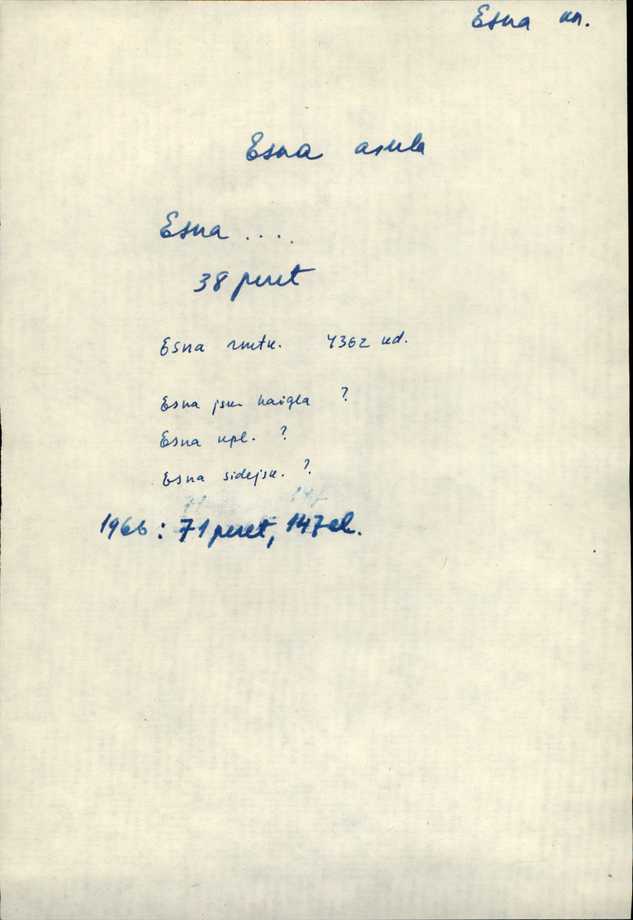 Esna kn.
Esna asula
Esna ....
38 peret
Esna rmtk. 4362 kd.
Esna jsk haigla ?
Esna kpl. ?
Esna sidejsk. ?
1966: 71 peret, 147 el.